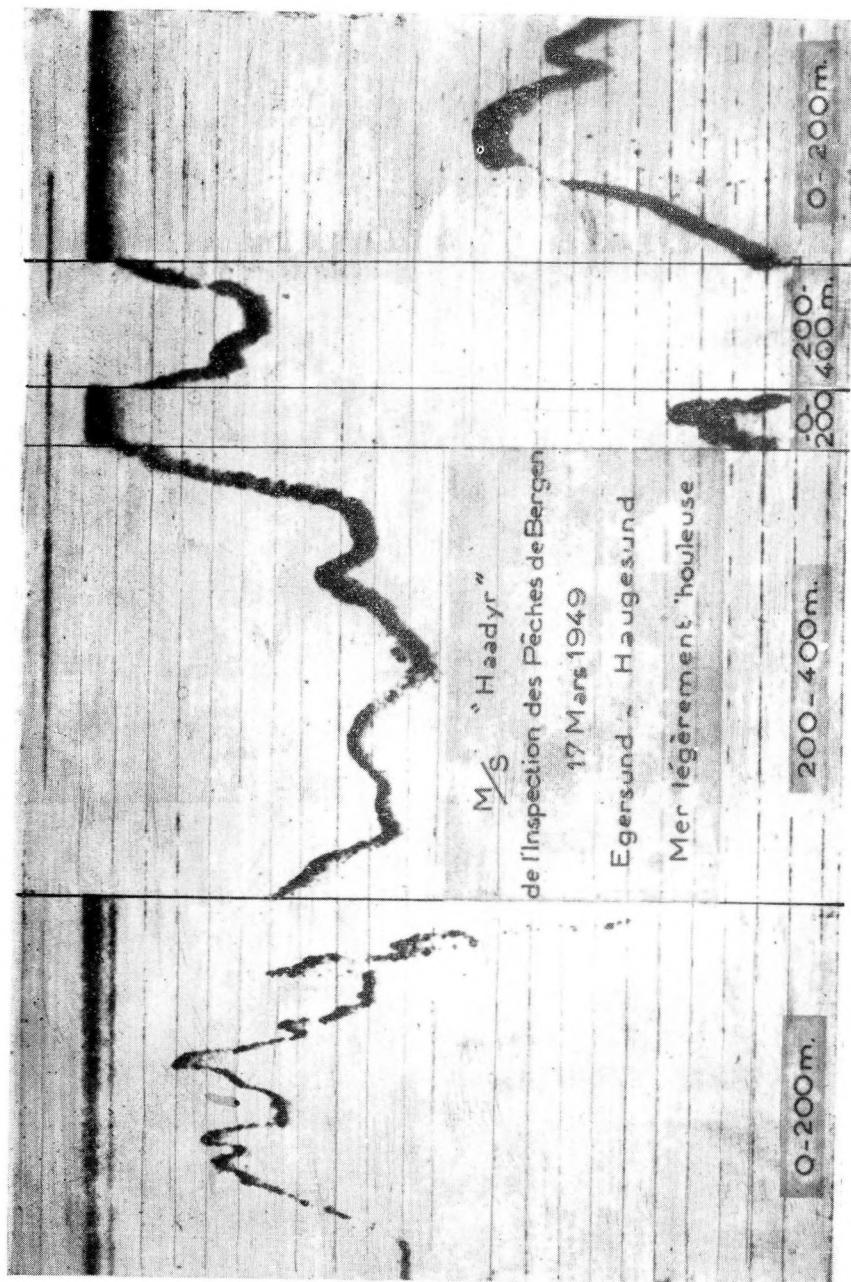 M/S "Haadyr"
de l'Inspection des Pêches de Bergen
17 Mars 1949
Egersund - Haugesund
Mer légèrement houleuse
0-200m.
200-400m.
0-
200
200-
400m.
0-200m.